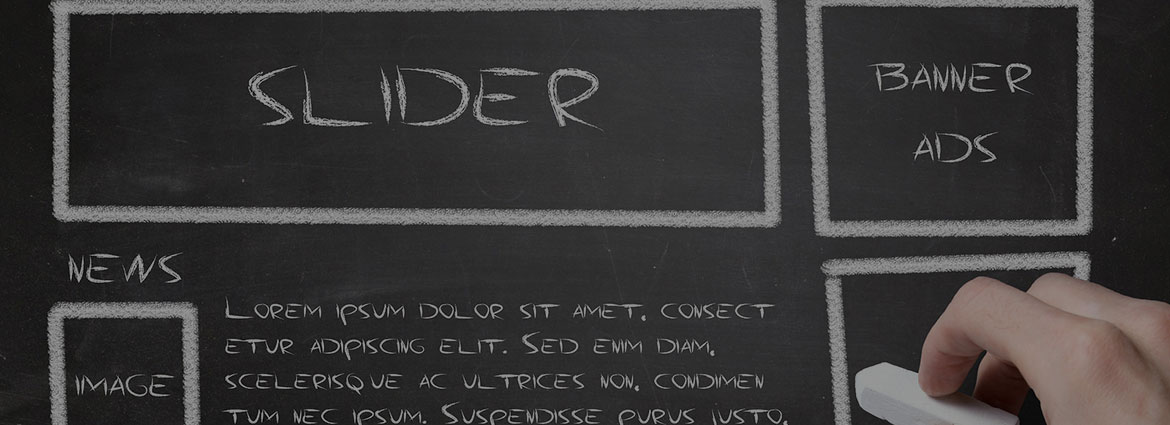 SLIDER
BANNER
ADS
NEWS
IMAGE
LOREM IPSUM DOLOR SIT AMET, CONSECT
ETUR ADIPISCING ELIT. SED ENIM DIAM,
SCELERISQUE AC ULTRICES NON, CONDIMEN
TUM NEC IPSUM. SUSPENDISSE PURUS JUSTO,